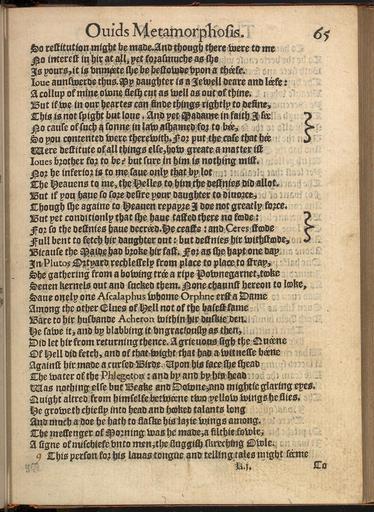 Ouids Metamorphosis. 65
So restitution might be made. And though there were to me
No interest in hir at all, yet forasmuche as she
Is yours, it is unmeete she be bestowde upon a theefe.
Ioue aunswerde thus. My daughter is a Iewell deare and leefe:
A collup of mine owne flesh cut as well as out of thine.
But if we in our heartes can finde things rightly to define,
This is not spight but loue. And yet Madame in faith I see
No cause of such a sonne in law ashamed for to bee,
So you contented were therewith. For put the case that hee
Were destitute of all things else, how greate a matter ist
Ioues brother for to be? but sure in him is nothing mist.
Nor he inferior is to me saue only that by lot
The Heauens to me, the Helles to him the destnies did allot.
But if you haue so sore desire your daughter to diuorce,
Though she againe to Heauen repayre I doe not greatly force.
But yet conditionly that she haue tasted there no foode:
For so the destnies haue decreed. He ceaste: and Ceres stoode
Full bent to fetch hir daughter out: but destnies hir withstoode,
Bicause the Mayde had broke hir fast. For as she hapt one day
In Plutos Ortyard rechlessely from place to place to stray,
She gathering from a bowing tree a ripe Pownegarnet, tooke
Seuen kernels out and sucked them. None chaunst hereon to looke,
Saue onely one Ascalaphus whome Orphne erst a Dame
Among the other Elues of Hell not of the basest fame
Bare to hir husbande Acheron within hir duskie den.
He sawe it, and by blabbing it vngraciously as then,
Did let hir from returning thence. A grieuous sigh the Queene
Of Hell did fetch, and of that wight that had a witnesse beene
Against hir made a cursed Birde. Upon his face she shead
The water of the Phlegeton: and by and by his head
Was nothing else but Beake and Downe, and mightie glaring eyes.
Quight altred from himselfe betweene two yellow wings he flies.
He groweth chiefly into head and hooked talants long
And much a doe he hath to flaske his lazie wings among.
The messenger of Morning was he made, a filthie fowle,
A signe of mischiefe vnto men, the sluggish skreching Owle.
This person for his lauas tongue and telling tales might seeme
K.j. To